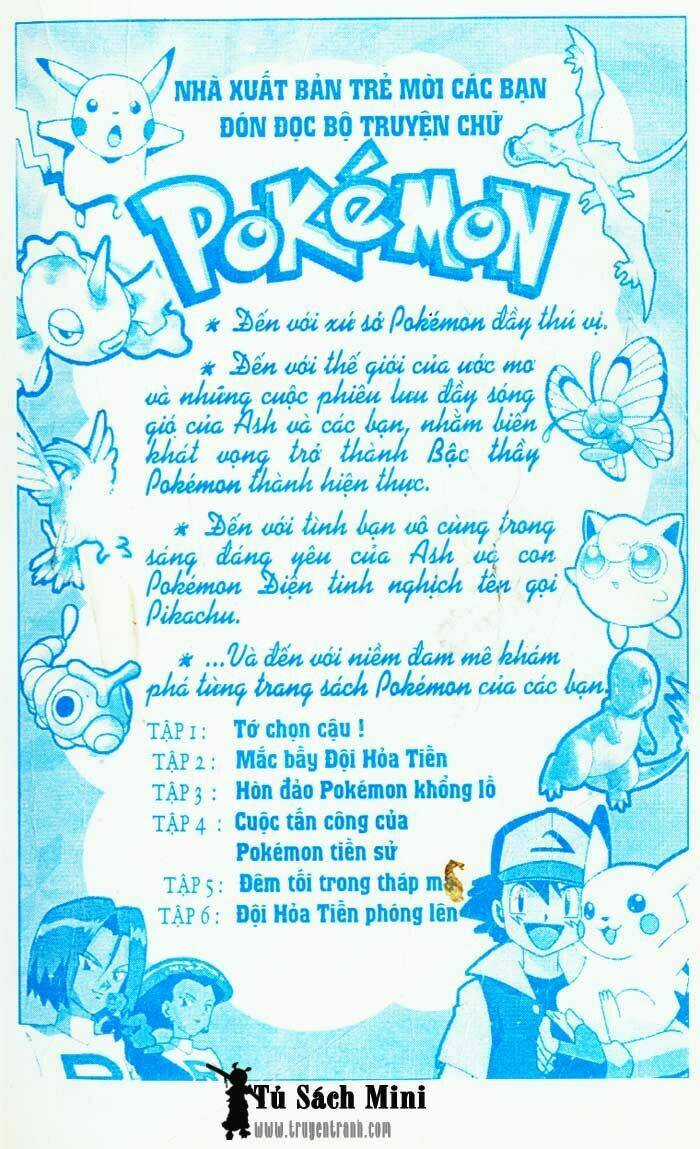 NHÀ XUẤT BẢN TRẺ MỜI CÁC BẠN
ĐÓN ĐỌC BỘ TRUYỆN CHỮ
POKéMON
* Đến với xứ sở Pokémon đầy thú vị.
* Đến với thế giới của ước mơ
và những cuộc phiêu lưu đầy sóng
gió của Ash và các bạn, nhằm biến
khát vọng trở thành Bậc thầy
Pokémon thành hiện thực.
* Đến với tình bạn vô cùng trong
sáng đáng yêu của Ash và con
Pokémon Điện tinh nghịch tên gọi
Pikachu.
* ...Và đến với niềm đam mê khám
phá từng trang sách Pokémon của các bạn.
TẬP 1: Tớ chọn cậu !
TẬP 2: Mắc bẫy Đội Hỏa Tiễn
TẬP 3 : Hòn đảo Pokémon khổng lồ
TẬP 4 : Cuộc tấn công của
Pokémon tiền sử
TẬP 5: Đêm tối trong tháp
TẬP 6: Đội Hỏa Tiễn phóng lên
Tủ Sách Mini
www.truyentranh.com